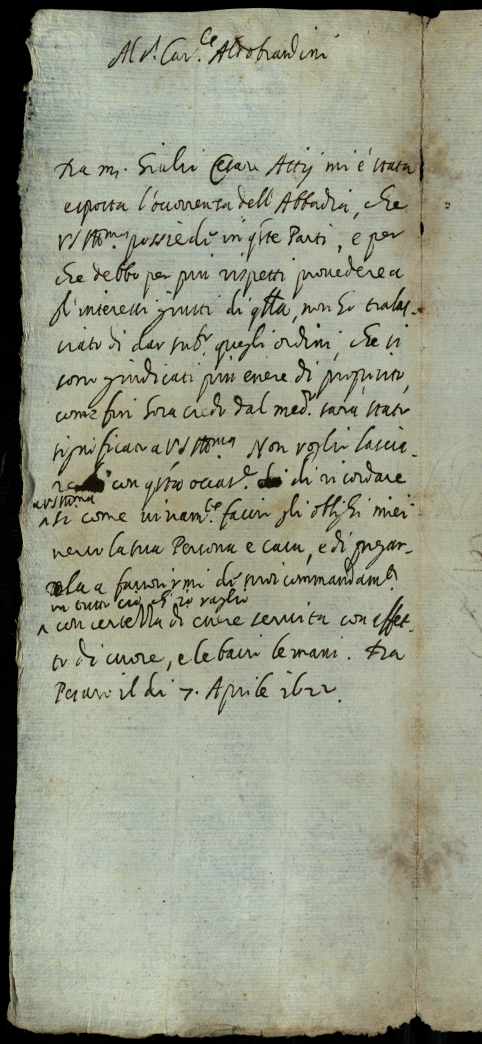 Al S.r Car.le Aldobrandini
Da m.r Giulio Cesare Attij mi è stata
esposta l'ocorrenza dell'Abbadia, che
VS Ill.ma possiede in q.ste Parti, e per
che debbo per più rispetti provedere a
gl'interessi giusti di q.lla, non ho tralas-
ciato di dar sub.o quegli ordini, che si
sono giudicati più a proposito,
come fin hora credo dal med.o sarà stato
significato a VS Ill.ma Non voglio lascia-
re con q.sta occas.e di ricordare
a VS Ill.ma
si come vivam.te faccio gli oblighi miei
verso la sua Persona e casa, e di pregar-
la a favorirmi de suoi commandam.ti
in tutto ciò ch'io vaglio
con certezza di essere servita con affet-
to di cuore, e le bacio le mani. Da
Pesaro il di 7. Aprile 1622.